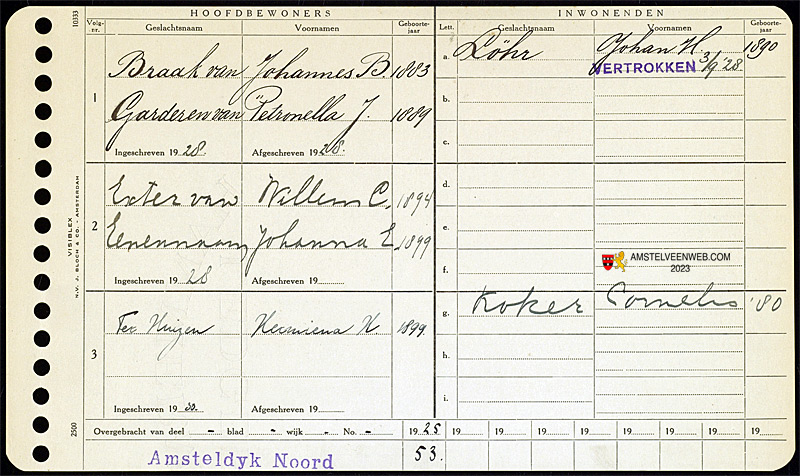 HOOFDBEWONERS
INWONENDEN
10333
Volg-nr. Geslachtsnaam Voornamen Geboorte-jaar
Lett. Geslachtsnaam Voornamen Geboorte-jaar
1
Braak van Johannes B. 1883
Garderen van Petronella J. 1889
Ingeschreven 1928. Afgeschreven 1928.
2
Exter van Willem C. 1894
Eenennaam Johanna E. 1899
Ingeschreven 1928 Afgeschreven 19
3
Ter Hermiena H. 1899
Ingeschreven 1930. Afgeschreven 19
a. Löhr Johan H. 1890
VERTROKKEN 3/9 '28
b.
c.
d.
e.
f.
AMSTELVEENWEB.COM
2023
g. Koker Cornelis '80
h.
i.
VISIBLEX
N.V. J. BLOCH & CO. - AMSTERDAM
2500
Overgebracht van deel - blad - wijk - No. - 1925 19 19 19 19 19 19 19 19 19
Amsteldyk Noord 53.